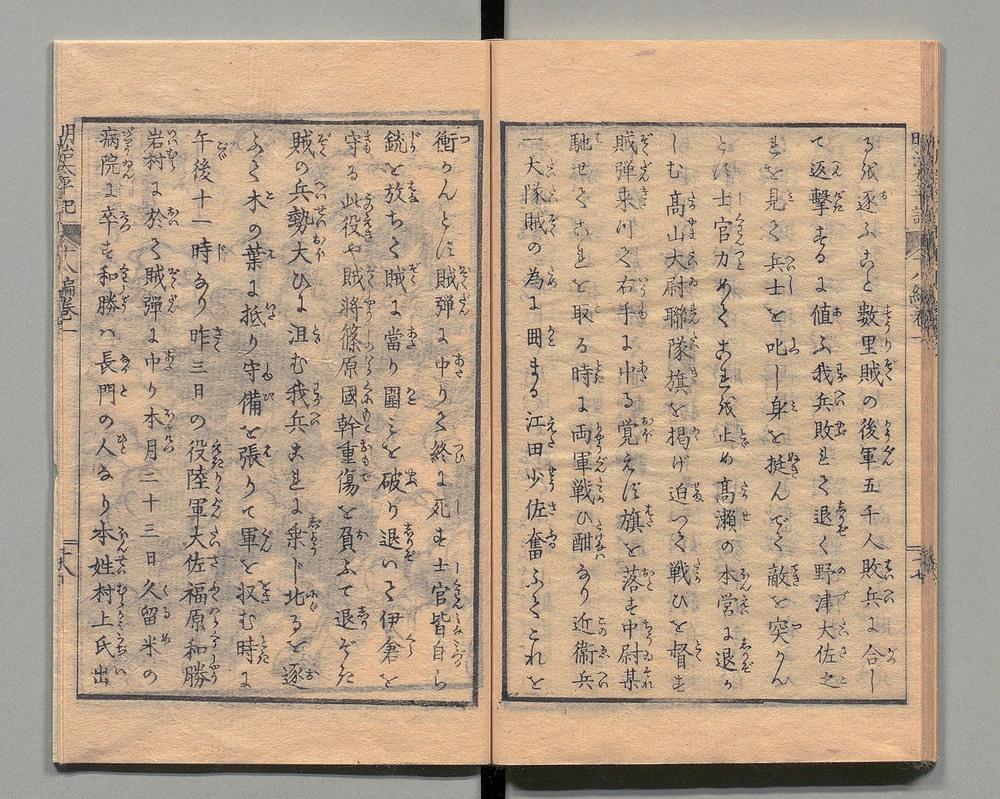 る我逐ふこと数里賊の後軍五千人敗兵に合し
て返撃するに値ふ我兵敗れて退く野津大佐之
れを見て兵士を叱し身を挺んでて敵を突かん
とす士官力めてこれを止め高瀬の本営に退か
しむ高山大尉聯隊旗を掲げ迫つて戦ひを督す
賊弾来りて右手に中る覚えず旗を落す中尉某
馳せてこれを取る時に両軍戦ひ酣なり近衛兵
一大隊賊の為に囲まる江田少佐奮ふてこれを
衝かんとす賊弾に中りて終に死す士官皆自ら
銃を放ちて賊に當り圍みを破り退いて伊倉を
守る此役や賊将篠原國幹重傷を負ふて退ぞた
賊の兵勢大ひに沮む我兵これに乗じ北るを逐
ふて木の葉に抵り守備を張りて軍を収む時に
午後十一時なり昨三日の役陸軍大佐福原和勝
岩村に於て賊弾に中り本月二十三日久留米の
病院に卒す和勝ハ長門の人なり本姓村上氏出
明治太平記
十八編巻一
十八